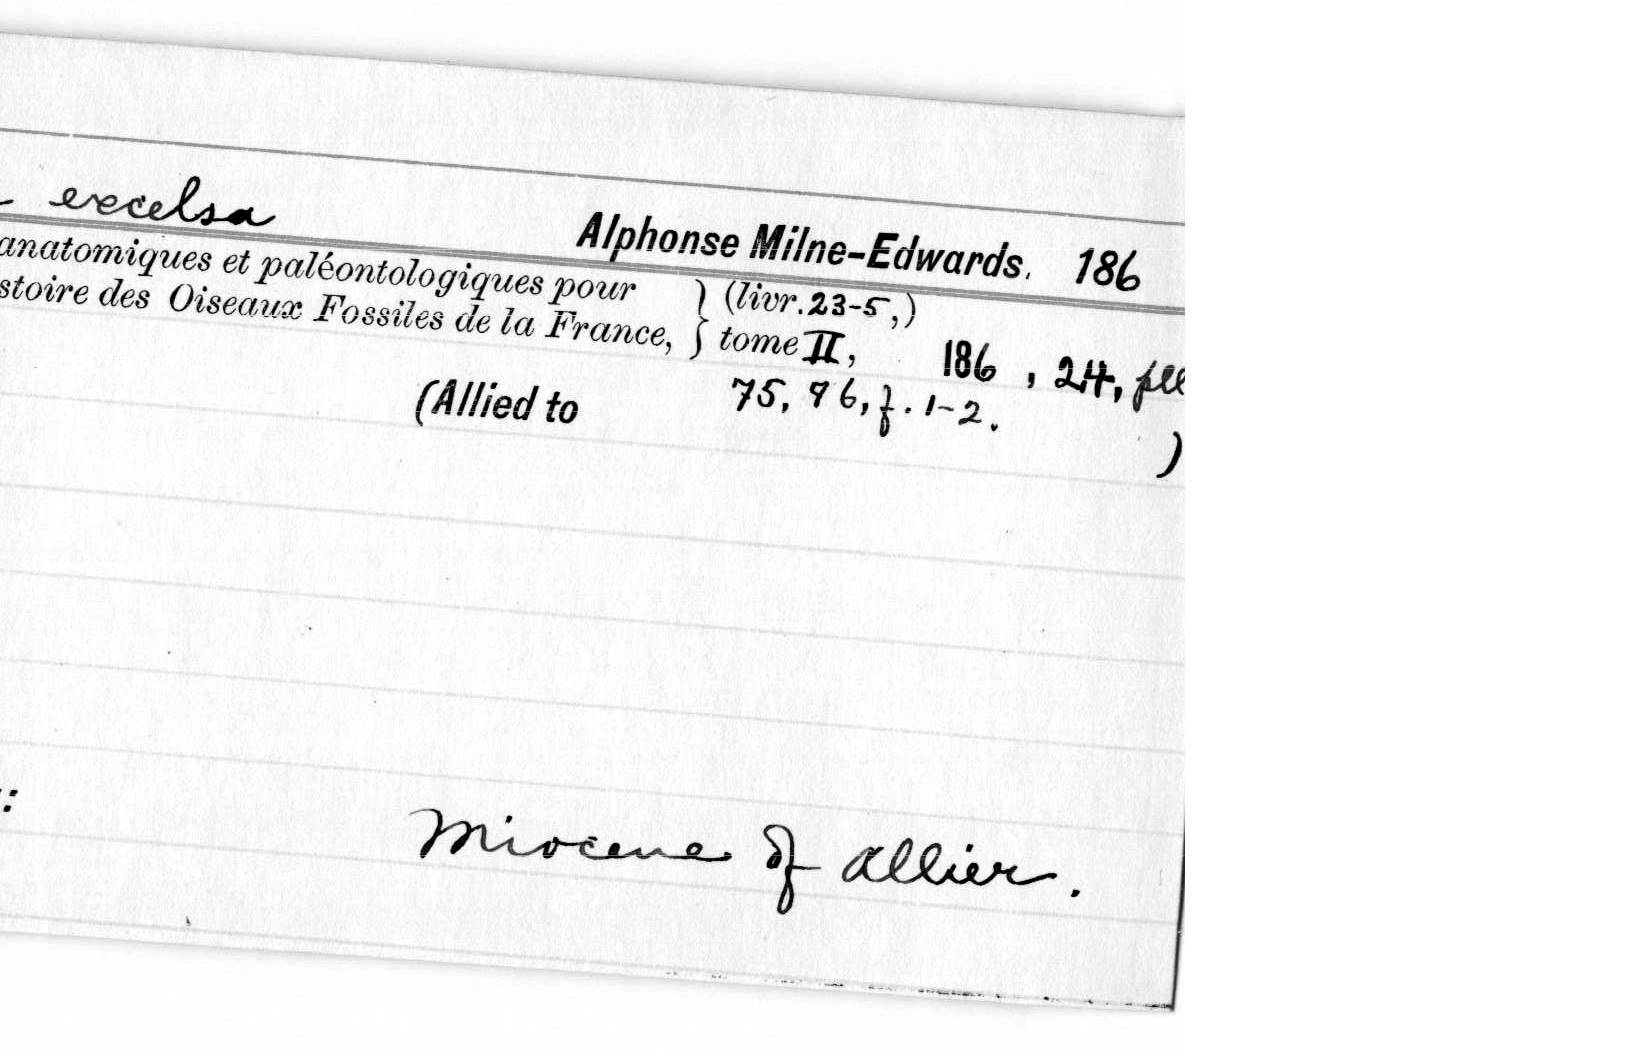 excelsa Alphonse Milne-Edwards. 186
anatomiques et paléontologiques pour } (livr. 23-5,)
stoire des Oiseaux Fossiles de la France, } tome II, 186 , 24, pll
(Allied to 75, 76, f. 1-2. )
Miocene of Allier.